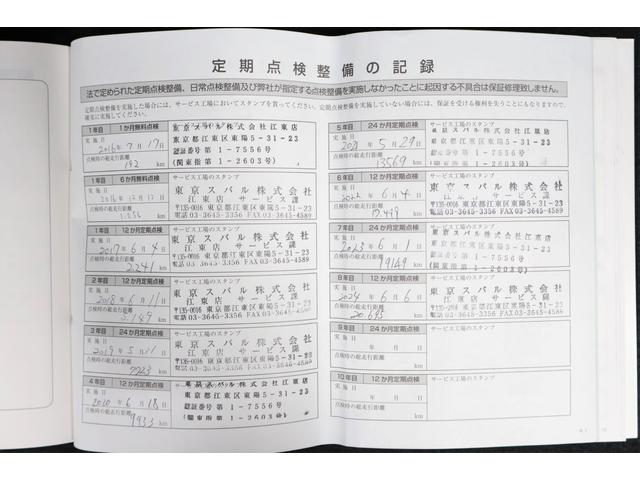 定期点検整備の記録
法で定められた定期点検整備、日常点検整備及び弊社が指定する点検整備を実施しなかったことに起因する不具合は保証修理致しません。
定期点検整備を実施した場合には、サービス工場においてスタンプを貰ってください。定期点検整備を実施していない場合には、保証を受ける権利を失うことにもなりますので、
確実に実施してください。
1年目 1か月無料点検
実施日
2016年7月17日
点検時の総走行距離
192 km
東京スバル株式会社江東店
東京都江東区東陽5-31-23
認証番号第1-7556号
(関東指第1-2603号)
1年目 6か月無料点検 サービス工場のスタンプ
実施日
2016年12月12日
点検時の総走行距離
km
東京スバル株式会社
江東店 サービス課
〒135-0016 東京都江東区東陽5-31-23
電話03-3645-3356 FAX03-3645-4589
1年目 12か月定期点検 サービス工場のスタンプ
実施日
2017年6月4日
点検時の総走行距離
2,241 km
東京スバル株式会社
江東店 サービス課
〒135-0016 東京都江東区東陽5-31-23
電話03-3645-3356 FAX03-3645-4589
2年目 24か月定期点検 サービス工場のスタンプ
実施日
2018年6月11日
点検時の総走行距離
km
東京スバル株式会社
江東店 サービス課
〒135-0016 東京都江東区東陽5-31-23
電話03-3645-3356 FAX03-3645-4589
3年目 24か月定期点検 サービス工場のスタンプ
実施日
2019年5月31日
点検時の総走行距離
km
東京スバル株式会社
江東店 サービス課
〒135-0016 東京都江東区東陽5-31-23
電話03-3645-3356 FAX03-3645-4589
4年目 12か月定期点検
実施日
2020年6月18日
点検時の総走行距離
9933 km
東京スバル株式会社江東店
東京都江東区東陽5-31-23
認証番号第1-7556号
(関東指第1-2603号)
5年目 24か月定期点検 サービス工場のスタンプ
実施日
2021年5月29日
点検時の総走行距離
13569 km
東京スバル株式会社江東店
東京都江東区東陽5-31-23
認証番号第1-7556号
(関東指第1-2603号)
6年目 12か月定期点検 サービス工場のスタンプ
実施日
2022年6月4日
点検時の総走行距離
km
東京スバル株式会社
江東店 サービス課
〒135-0016 東京都江東区東陽5-31-23
電話03-3645-3356 FAX03-3645-4589
7年目 24か月定期点検 サービス工場のスタンプ
実施日
2023年6月1日
点検時の総走行距離
19149 km
東京スバル株式会社江東店
東京都江東区東陽5-31-23
認証番号第1-7556号
(関東指第1-2603号)
8年目 12か月定期点検 サービス工場のスタンプ
実施日
2024年6月6日
点検時の総走行距離
20,695 km
東京スバル株式会社
江東店 サービス課
〒135-0016 東京都江東区東陽5-31-23
電話03-3645-3356 FAX03-3645-4589
9年目 24か月定期点検 サービス工場のスタンプ
実施日
年 月 日
点検時の総走行距離
km
10年目 12か月定期点検 サービス工場のスタンプ
実施日
年 月 日
点検時の総走行距離
km